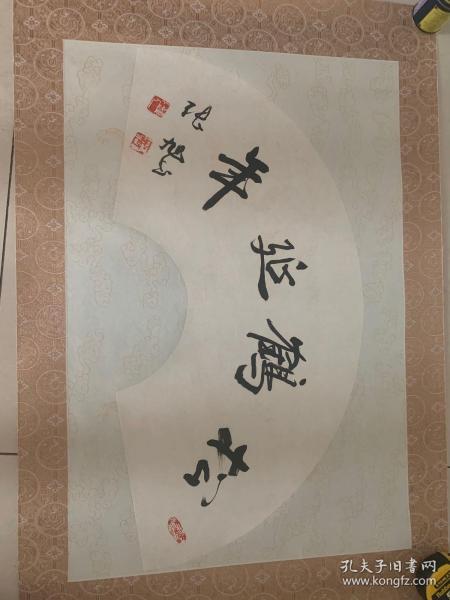 松鶴延年
张旭光
孔夫子旧书网
www.kongfz.com